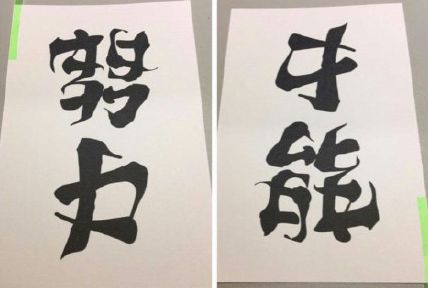 努力
才能